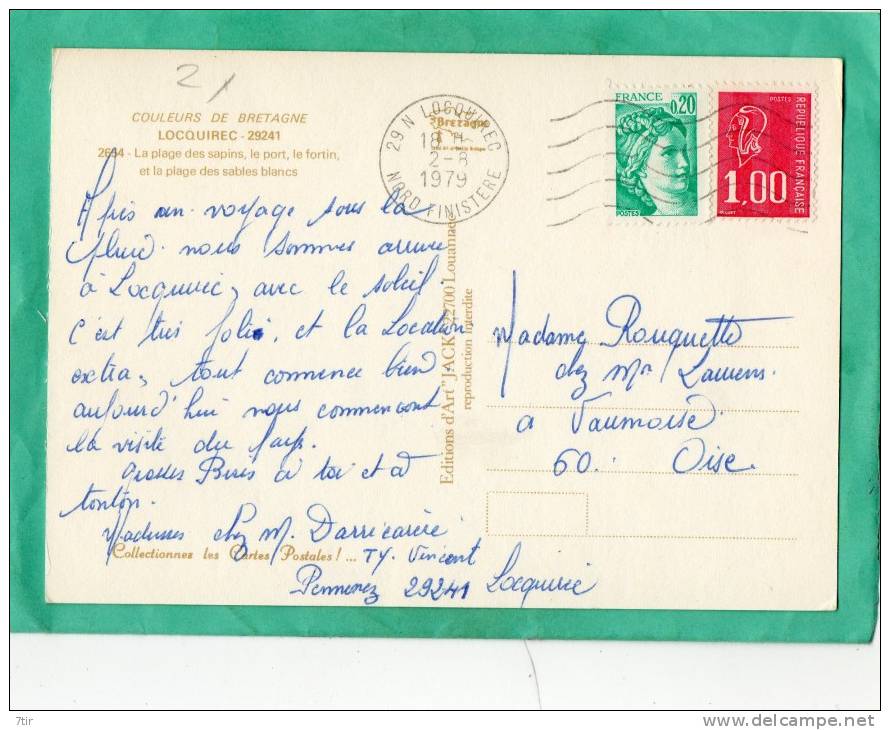 2
COULEURS DE BRETAGNE
LOCQUIREC - 29241
2664 - La plage des sapins, le port, le fortin,
et la plage des sables blancs
29 N LOCQUIREC
Bretagne
18 H
2-8
1979
NORD FINISTERE
FRANCE
0,20
POSTES
POSTES
REPUBLIQUE FRANÇAISE
1,00
Après un voyage sous la
pluie nous sommes arrivée
à Locquirec, avec le soleil
c'est très joli, et la Location
extra, tout commence bien
aujourd'hui nous commencont
la visite du pays.
Grosses Bises à toi et à
tonton.
chez M. Darricarère
Collectionnez les Cartes Postales ! ...
TY. Vincent
29241 Locquirec
Editions d'Art "JACK" 22700 Louannec
reproduction interdite
Madame Rouquette
chez Mr Laurens.
à Vaumoise
60. Oise.
7tir
delcampe.net